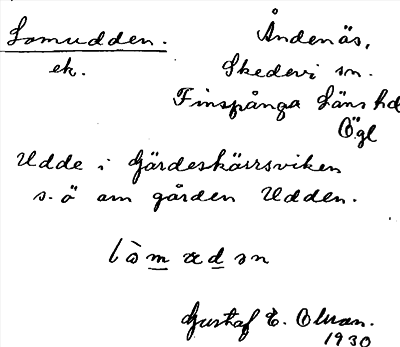 Lomudden. Åndenäs,
ek. Skedevi sn.
Finspånga Läns hd
Ögl
Udde i Gärdeskärrsviken
s.ö am gården Udden.
Gustaf E. Olsson.
1930